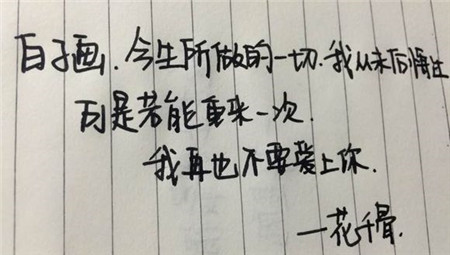 白子画.今生所做的一切.我从未后悔过
可是若能重来一次.
我再也不要爱上你.
—花千骨.